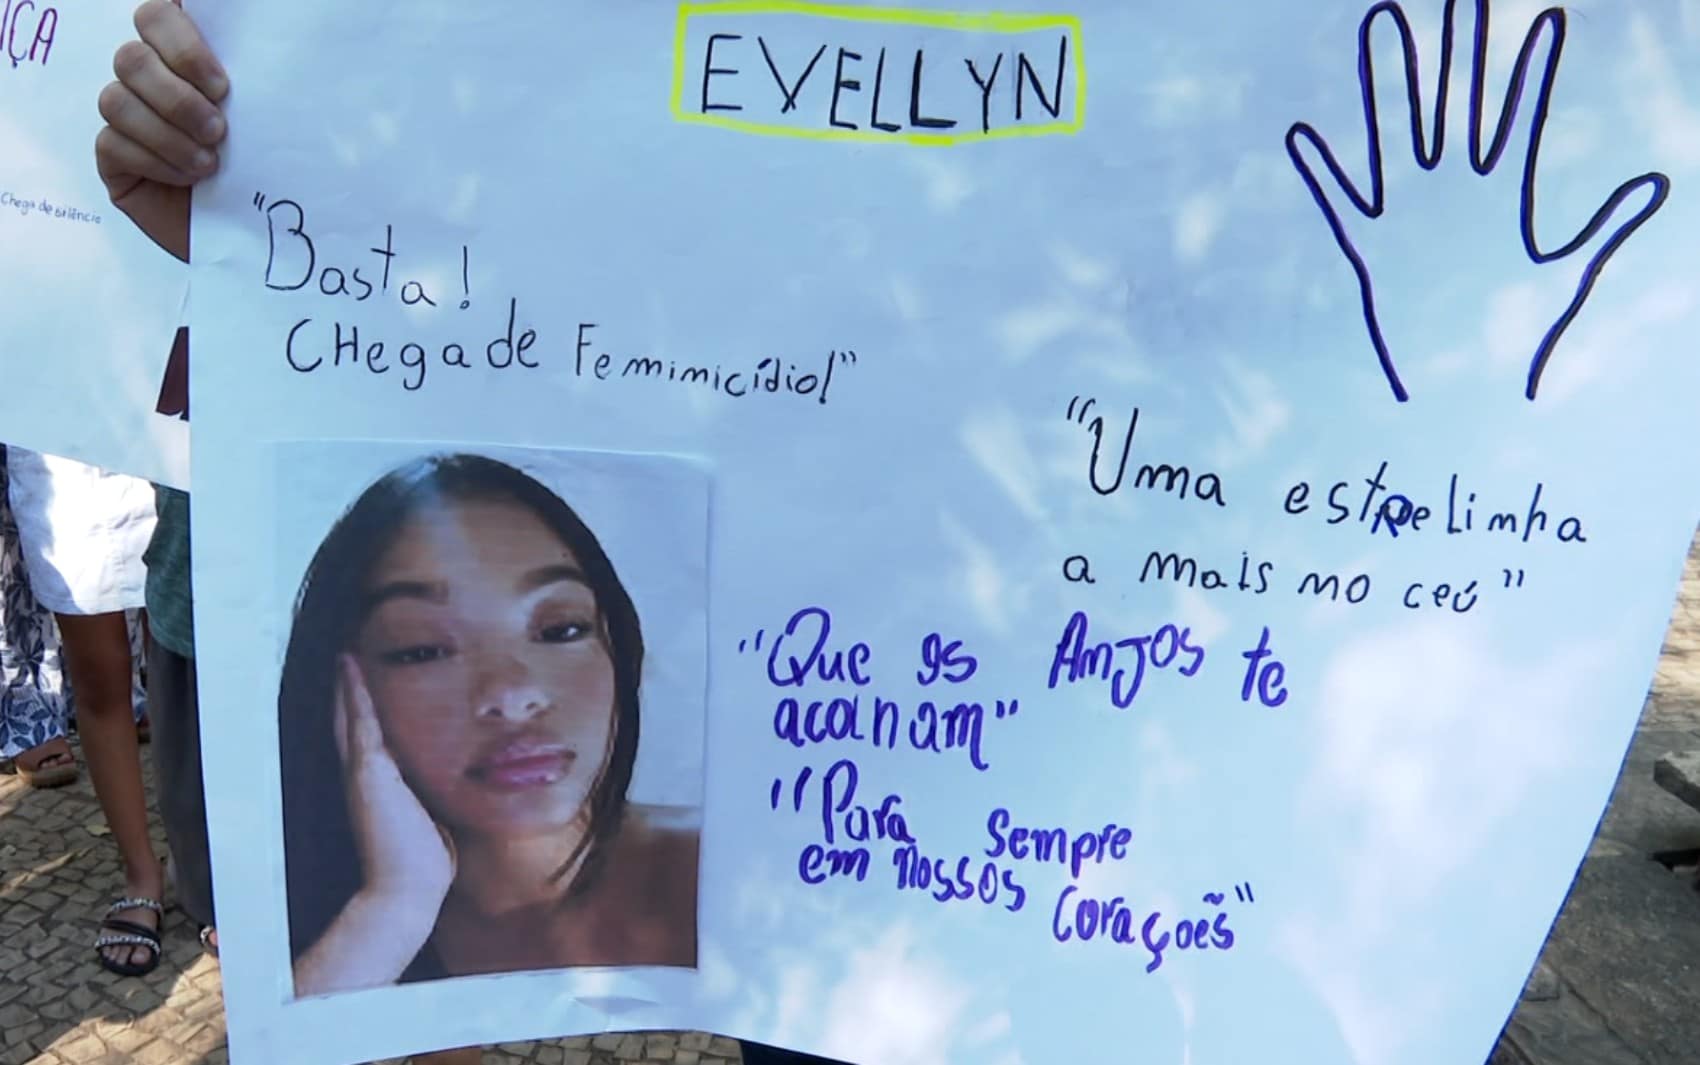 IÇA
Chega de silêncio
EVELLYN
"Basta!
CHega de Femimicídio!"
"Uma estRelimha
a mais mo ceú"
"Que os Anjos te
acanam"
"Para sempre
em nossos Coraçoẽs"